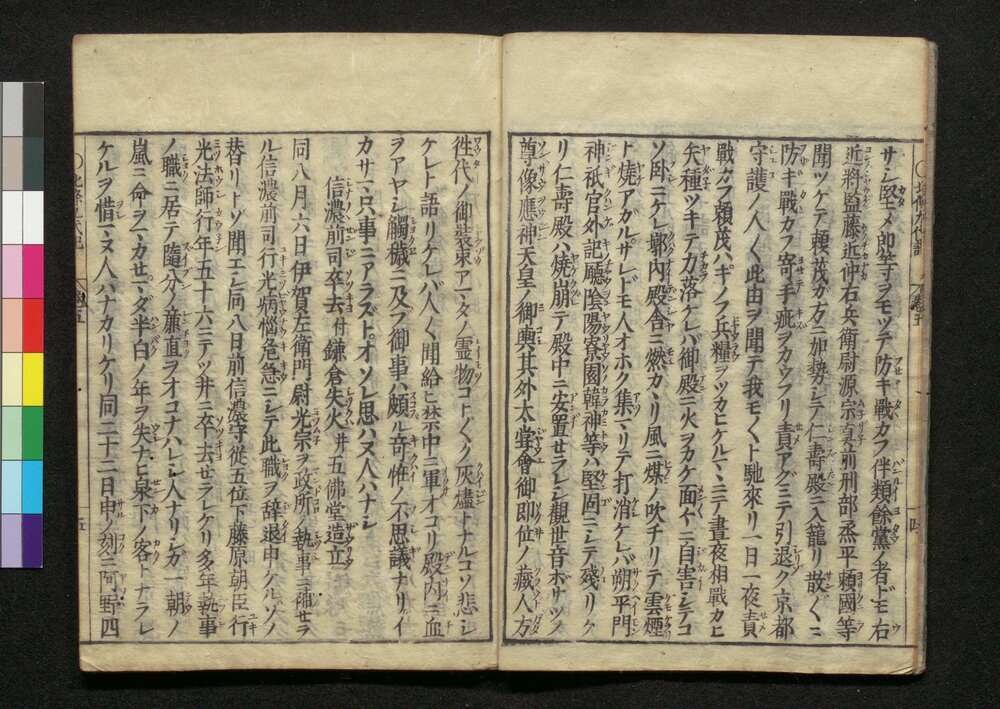 サシ堅メ即等ヲモツテ防キ戰カフ伴類餘黨ノ者ドモ右
近將監藤近仲右兵衛尉源宗眞前刑部烝平頼國等
聞ツケテ頼茂カ方ニ加勢シテ仁壽殿ニ入籠リ散〱ニ
防キ戰カフ寄手疵ヲカウフリ責アグミテ引退ク京都
守護ノ人〱此由ヲ聞テ我モ〱ト馳來リ一日一夜責
戰カフ頼茂ハキノフ兵糧ヲツカヒケルマヽニ三ノ晝夜相戰カヒ
矢種ツキテカ落ケレバ御殿ニ火ヲカケ面〱ニ自害シテコ
ソ臥ニケレ郭内殿舎ニ燃カヽリ風ニ煤ノ吹チリテ雲煙
ト燒アガルサレドモ人オホク集マリテ打消ケレバ朔平門
神祇官外記廳陰陽寮園韓神等ハ堅固ニシテ殘リケ
リ仁壽殿ハ燒崩テ殿中ニ安置セラレシ觀世音ボサツノ
尊像應神天皇ノ御輿其外太甞會御即位ノ藏人方
徃代ノ御裝束アマタノ霊物コト〱ク灰燼トナルコソ悲シ
ケレト語リケレバ人〱聞給ヒ禁中ニ軍オコリ殿内ニ血
ヲアヤシ觸穢ニ及フ御事ハ頗ル竒恠ノ不思議ナリイ
カサマ只事ニアラズトオソレ思ハヌ人ハナシ
信濃前司卒去付鎌倉失火并五佛堂造立
同八月六日伊賀左衛門尉光宗ヲ政所ノ執事ニ補セラ
ル信濃前司行光病惱危急ニシテ此職ヲ辞退申ケルソノ
替リトソ聞エシ同八日前信濃守從五位下藤原朝臣行
光法師行年五十六ニテツ井ニ卒去セラレケリ多年執事
ノ職ニ居テ隨分ノ廉直ヲオコナハレシ人ナリシガ一朝ノ
嵐ニ命ヲマカセマダ半白ノ年ヲ失ナヒ泉下ノ客トナラレ
ケルヲ惜マヌ人ハナカリケリ同二十二日申ノ刻ニ阿野四